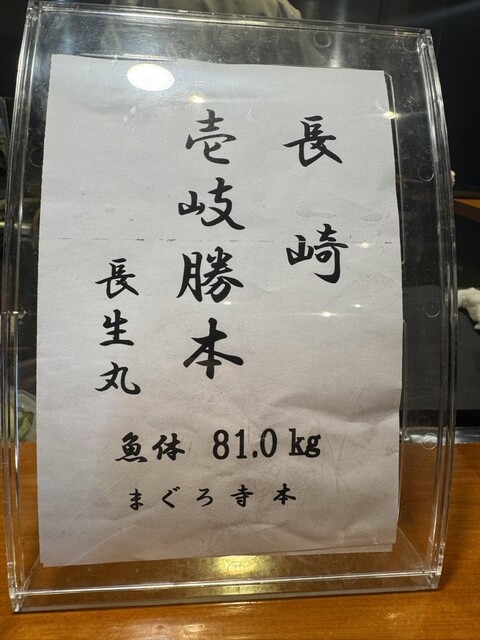 長崎
壱岐勝本
長生丸
魚体 81.0 kg
まぐろ寺本